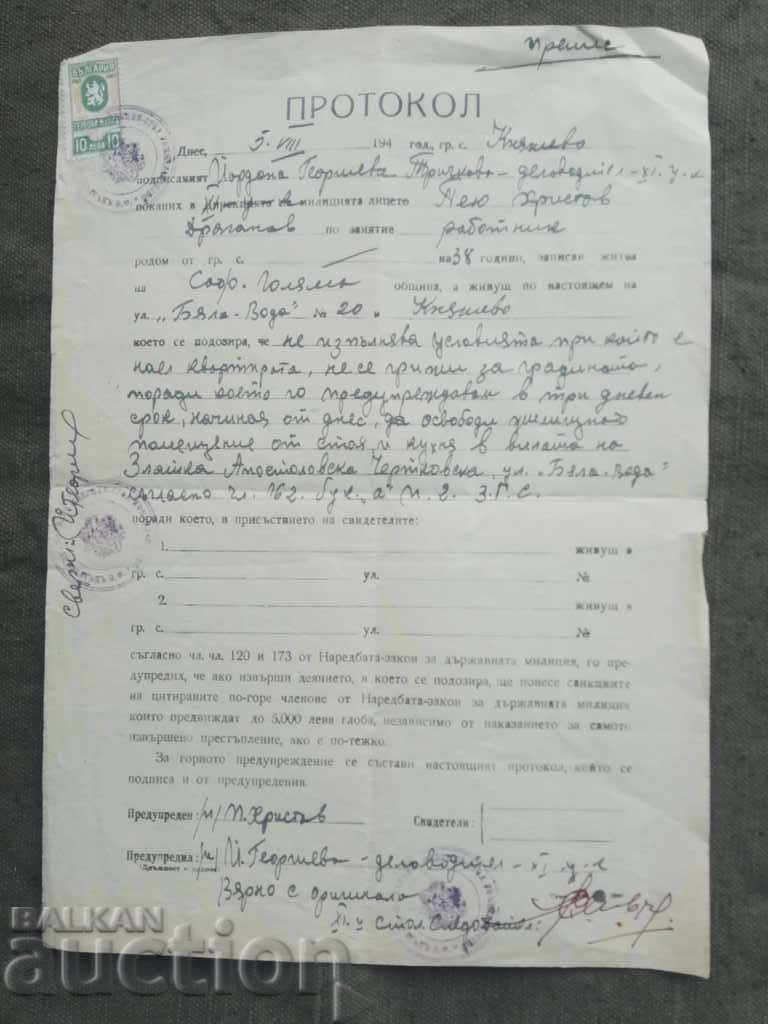 препис
БЪЛГАРИЯ
10 ЛЕВА 10
ПРОТОКОЛ
Днес, 5. VIII 194 год, гр. с. Княжево
подписаният Йордона Георгиева - деловодител - XI. у-к
поканих в милицията лицето Нею Христов
Драганов по занятие работник
родом от гр. с. / на 38 години, записан жител
на Соф. Голяма община, а живущ по настоящем на
ул. „Бяла-Вода" № 20 в Княжево
което се подозира, че не изпълнява условията при които е
наел квартирата, не се грижи за градината,
поради което го предупреждавам в три дневен
срок, начиная от днес, да освободи жилищното
помещение от стая и кухня в вилата на
Златка Апостоловска Чертковска, ул. „Бяла-Вода"
съгласно чл. 162. бук. „а" п. 2. З.Г.С.
поради което, в присъствието на свидетелите:
1. живущ в
гр. с. ул. №
2. живущ в
гр. с. ул. №
съгласно чл. чл. 120 и 173 от Наредбата-закон за държавната милиция, го пре-
дупредих, че ако извърши деянието, в което се подозира, ще понесе санкциите
на цитираните по-горе членове от Наредбата-закон за държавната милиция
които предвиждат до 5.000 лева глоба, независимо от наказанието за самото
извършено престъпление, ако е по-тежко.
За горното предупреждение се състави настоящият протокол, който се
подписа и от предупредения.
Предупреден: /п/ Н. Христов Свидетели:
Предупредил: /п/ Й. Георгиева - деловодител - XI у-к
Вярно с оригинала
XI. у Стол.
Сверил:
BALKAN
auction